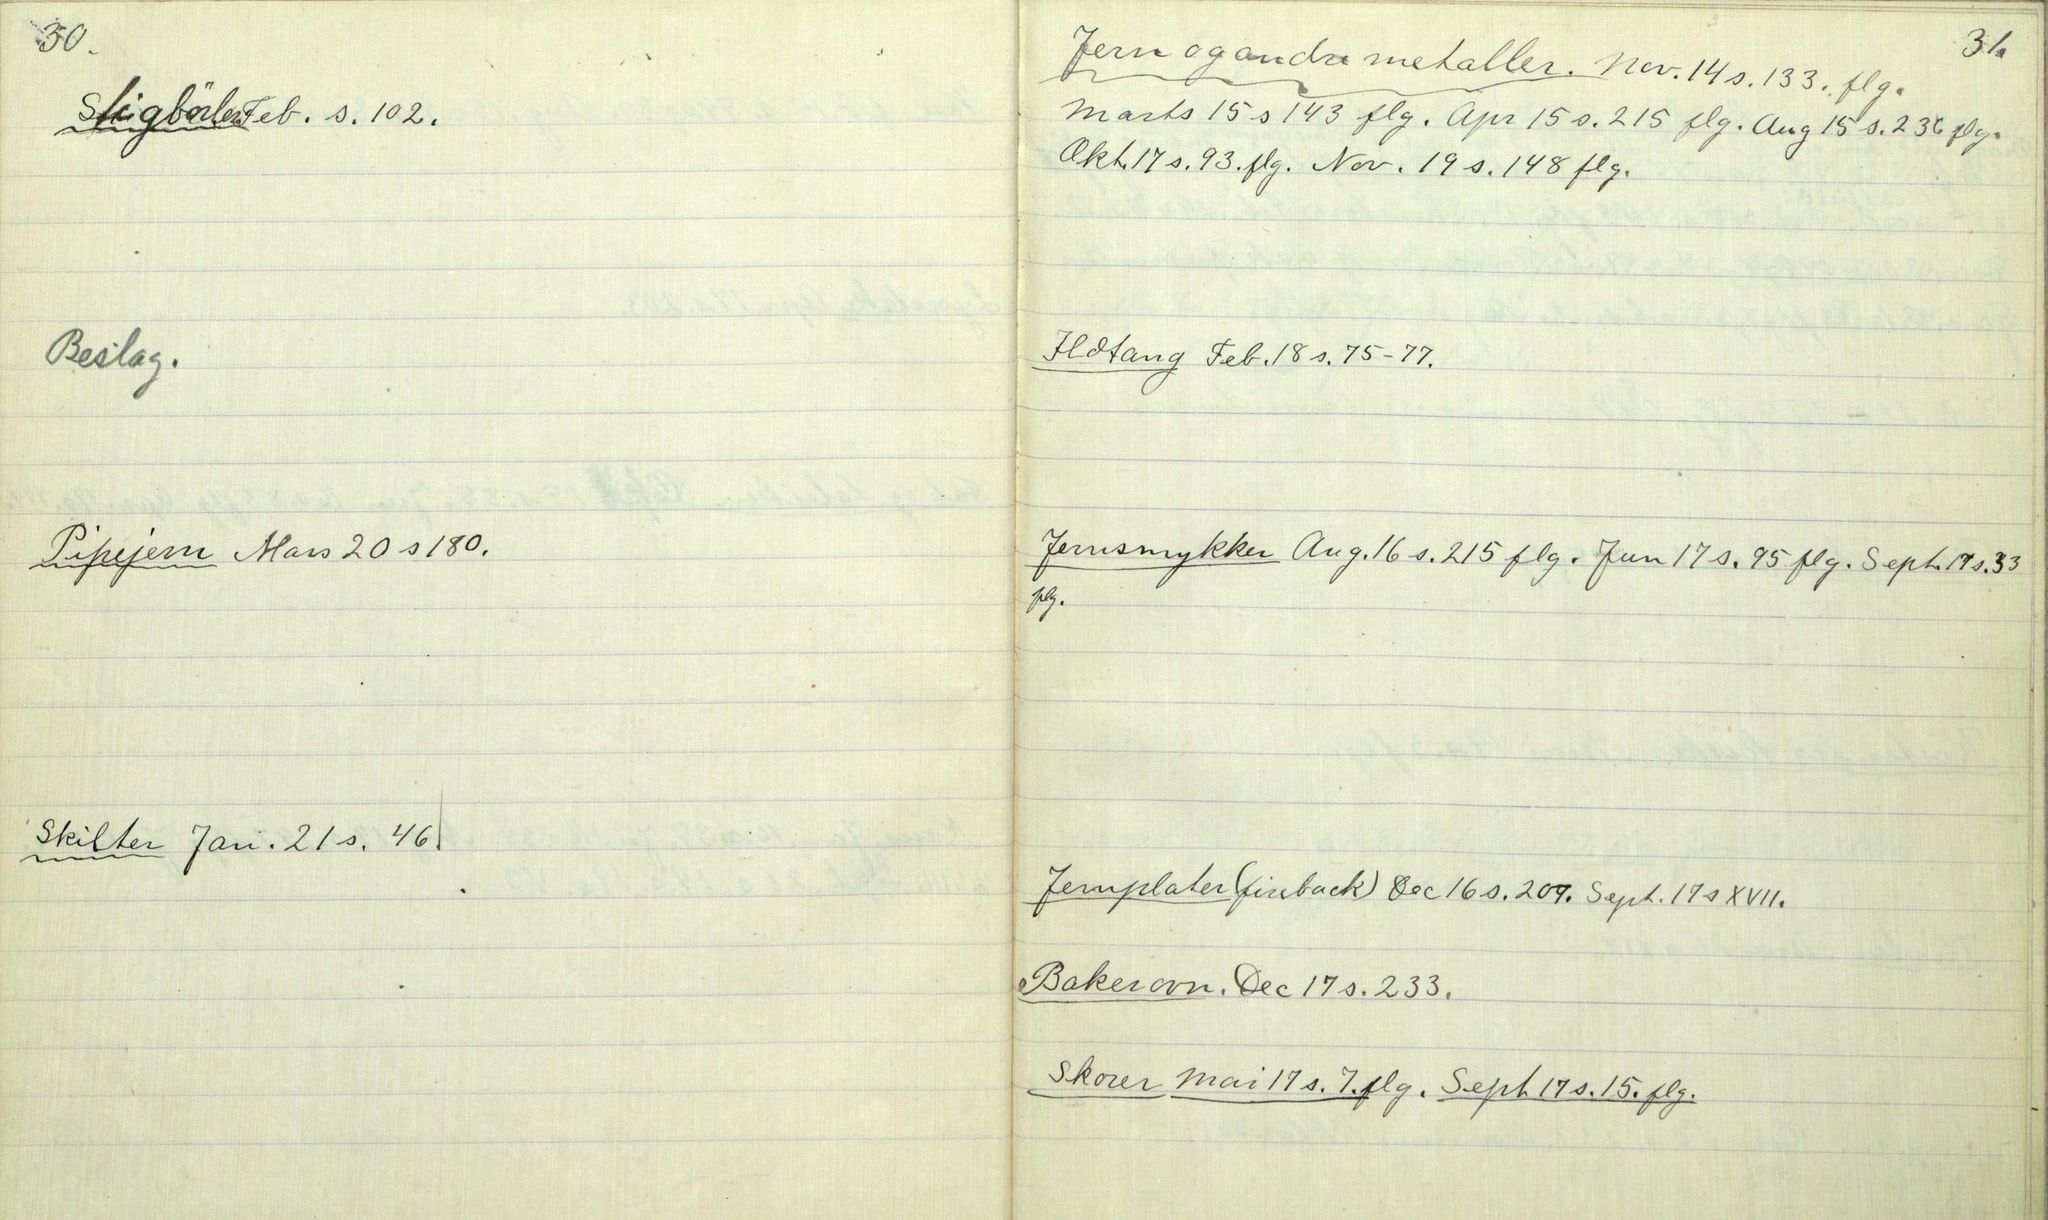 30.
Stigböiler Feb. s. 102.
Beslag.
Pipejern Mars 20 s 180.
Skilter Jan. 21 s. 46.
31.
Jern og andre metaller. Nov. 14 s. 133. flg.
Marts 15 s 143 flg. Apr 15 s. 215 flg. Aug 15 s. 236 flg.
Okt. 17 s. 93. flg. Nov. 19 s. 148 flg.
Ildtang Feb. 18 s. 75-77.
Jernsmykker Aug. 16 s. 215 flg. Jun 17 s. 95 flg. Sept. 17 s. 33
flg.
Jernplater (fireback) Dec 16 s. 209. Sept. 17 s XVII.
Bakerovn. Dec 17 s. 233.
Skorer Mai 17 s. 7. flg. Sept 17 s. 15. flg.